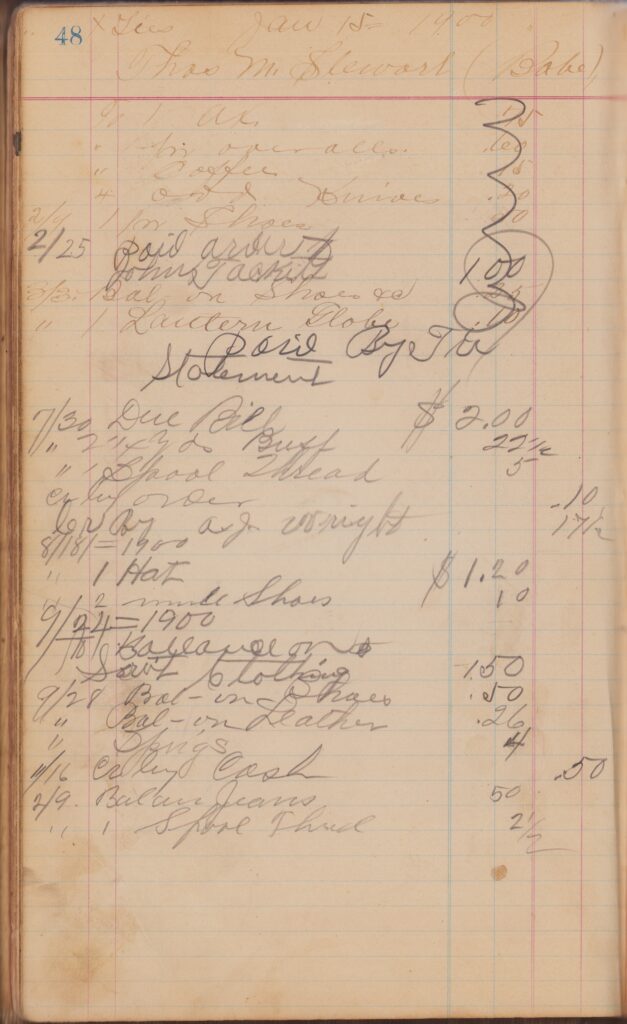 48 x Tues Jan 15 1900
Thos M. Stewart (Babe)
" 1 Ax
" 1 pr overalls .60
" Coffee
" Knives
2/9 1 pr Shoes
2/25 paid order of
John Tackett 1 00
Bal- on Shoes &c
" 1 Lantern Globe .10
Paid By The
Statement
7/30 Due Bill $ 2.00
" yds 22 1/2
" 1 Spool Thread 5
Cr by order .10
Cr By A.J. Wright 17 1/2
8/18/=1900
" 1 Hat $1.20
" 2 mule Shoes 10
9/24=1900
Ballance on
Suit Clothing 1.50
9/28 Bal-on Shoes .50
" Bal-on Leather .26
" Sprigs 4
11/16 Cr by Cash .50
2/9. Balan Jeans 50
" 1 Spool Thred 2 1/2